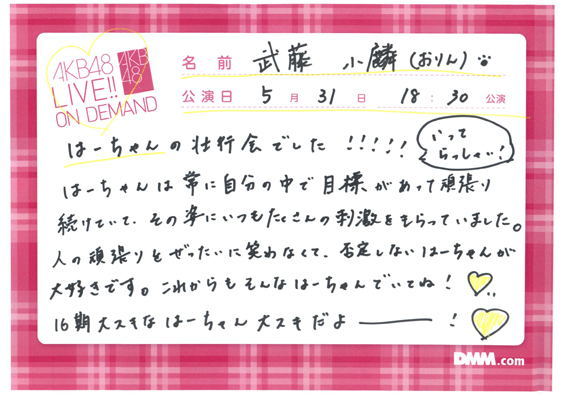 AKB48
LIVE!!
ON DEMAND
AKB
48
名前 武藤 小麟(おりん)
公演日 5月31日 18:30 公演
はーちゃんの壮行会でした!!!!!
いって
らっしゃい!
はーちゃんは常に自分の中で目標があって頑張り
続けていて、その姿にいつもたくさんの刺激をもらっていました。
人の頑張りをぜったいに笑わなくて、否定しないはーちゃんが
大好きです。これからもそんなはーちゃんでいてね!
16期大スキなはーちゃん大スキだよー!
DMM.com